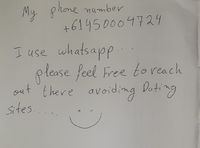 My phone number
+61450004724
I use whatsapp...
please feel Free to reach
out there avoiding Dating
Sites.....